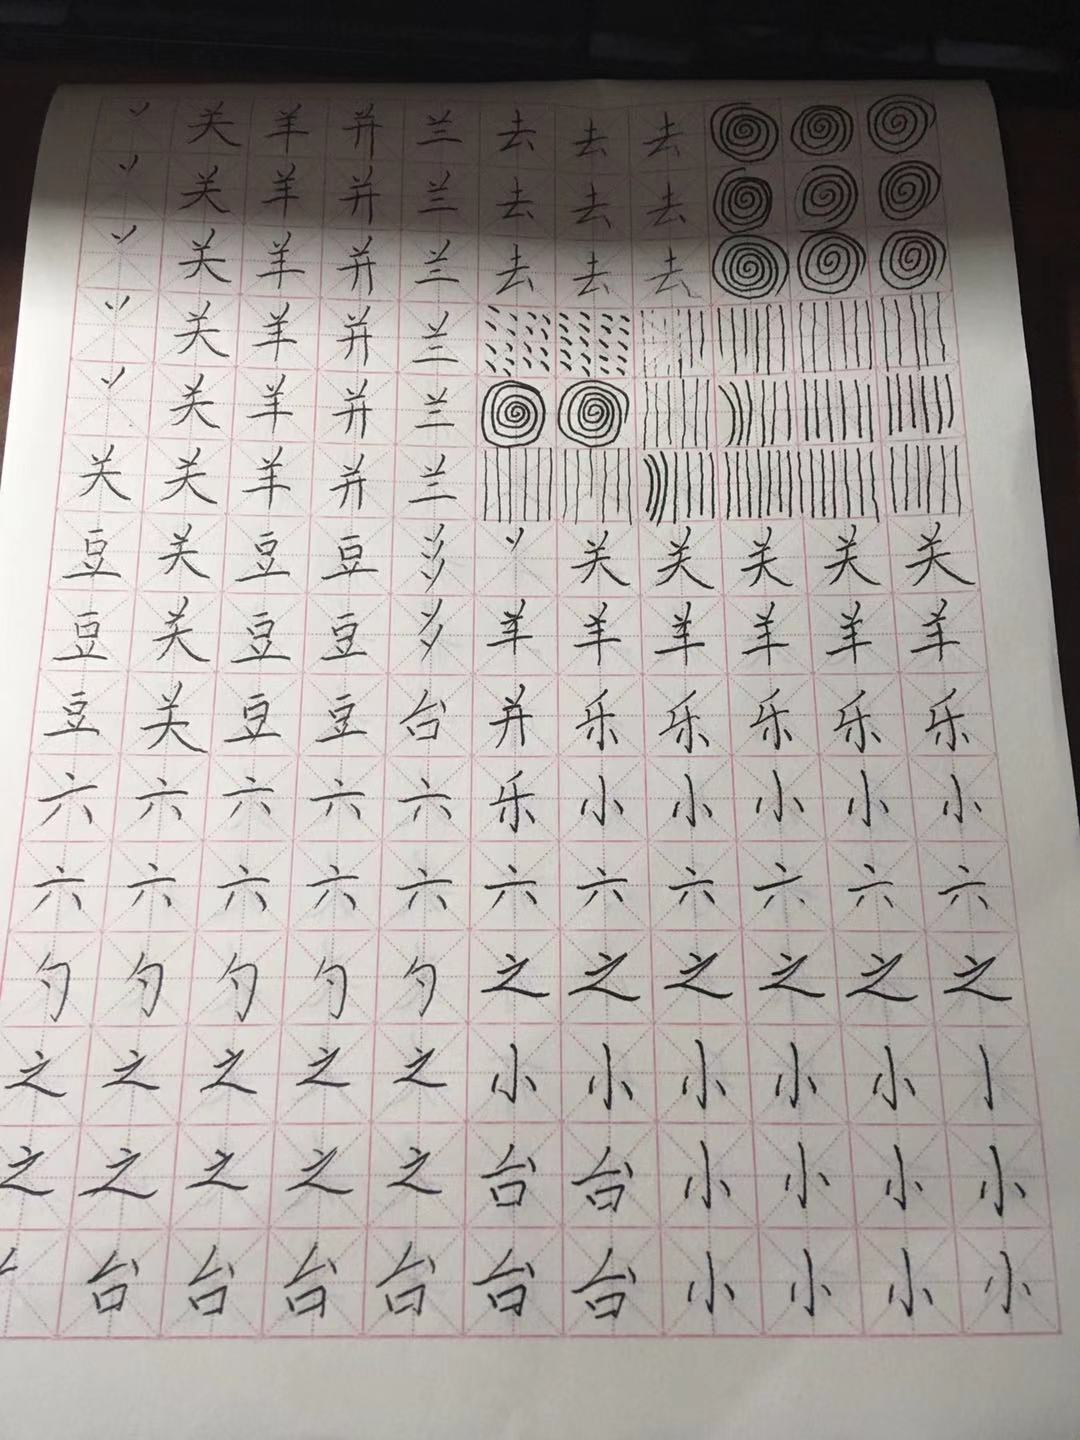 丷 关 羊 并 兰 去 去 去
丷 关 羊 并 兰 去 去 去
丷 关 羊 并 兰 去 去 去
丷 关 羊 并 兰
丷 关 羊 并 兰
关 关 羊 并 兰
豆 关 豆 豆 丷 关 关 关 关 关
豆 关 豆 豆 羊 羊 羊 羊 羊 羊
豆 关 豆 豆 台 并 乐 乐 乐 乐 乐
六 六 六 六 六 乐 小 小 小 小 小
六 六 六 六 六 六 六 六 六 六 六
勺 勺 勺 勺 勺 之 之 之 之 之 之
之 之 之 之 之 小 小 小 小 小 丨
之 之 之 之 之 台 台 小 小 小 小
台 台 台 台 台 台 小 小 小 小